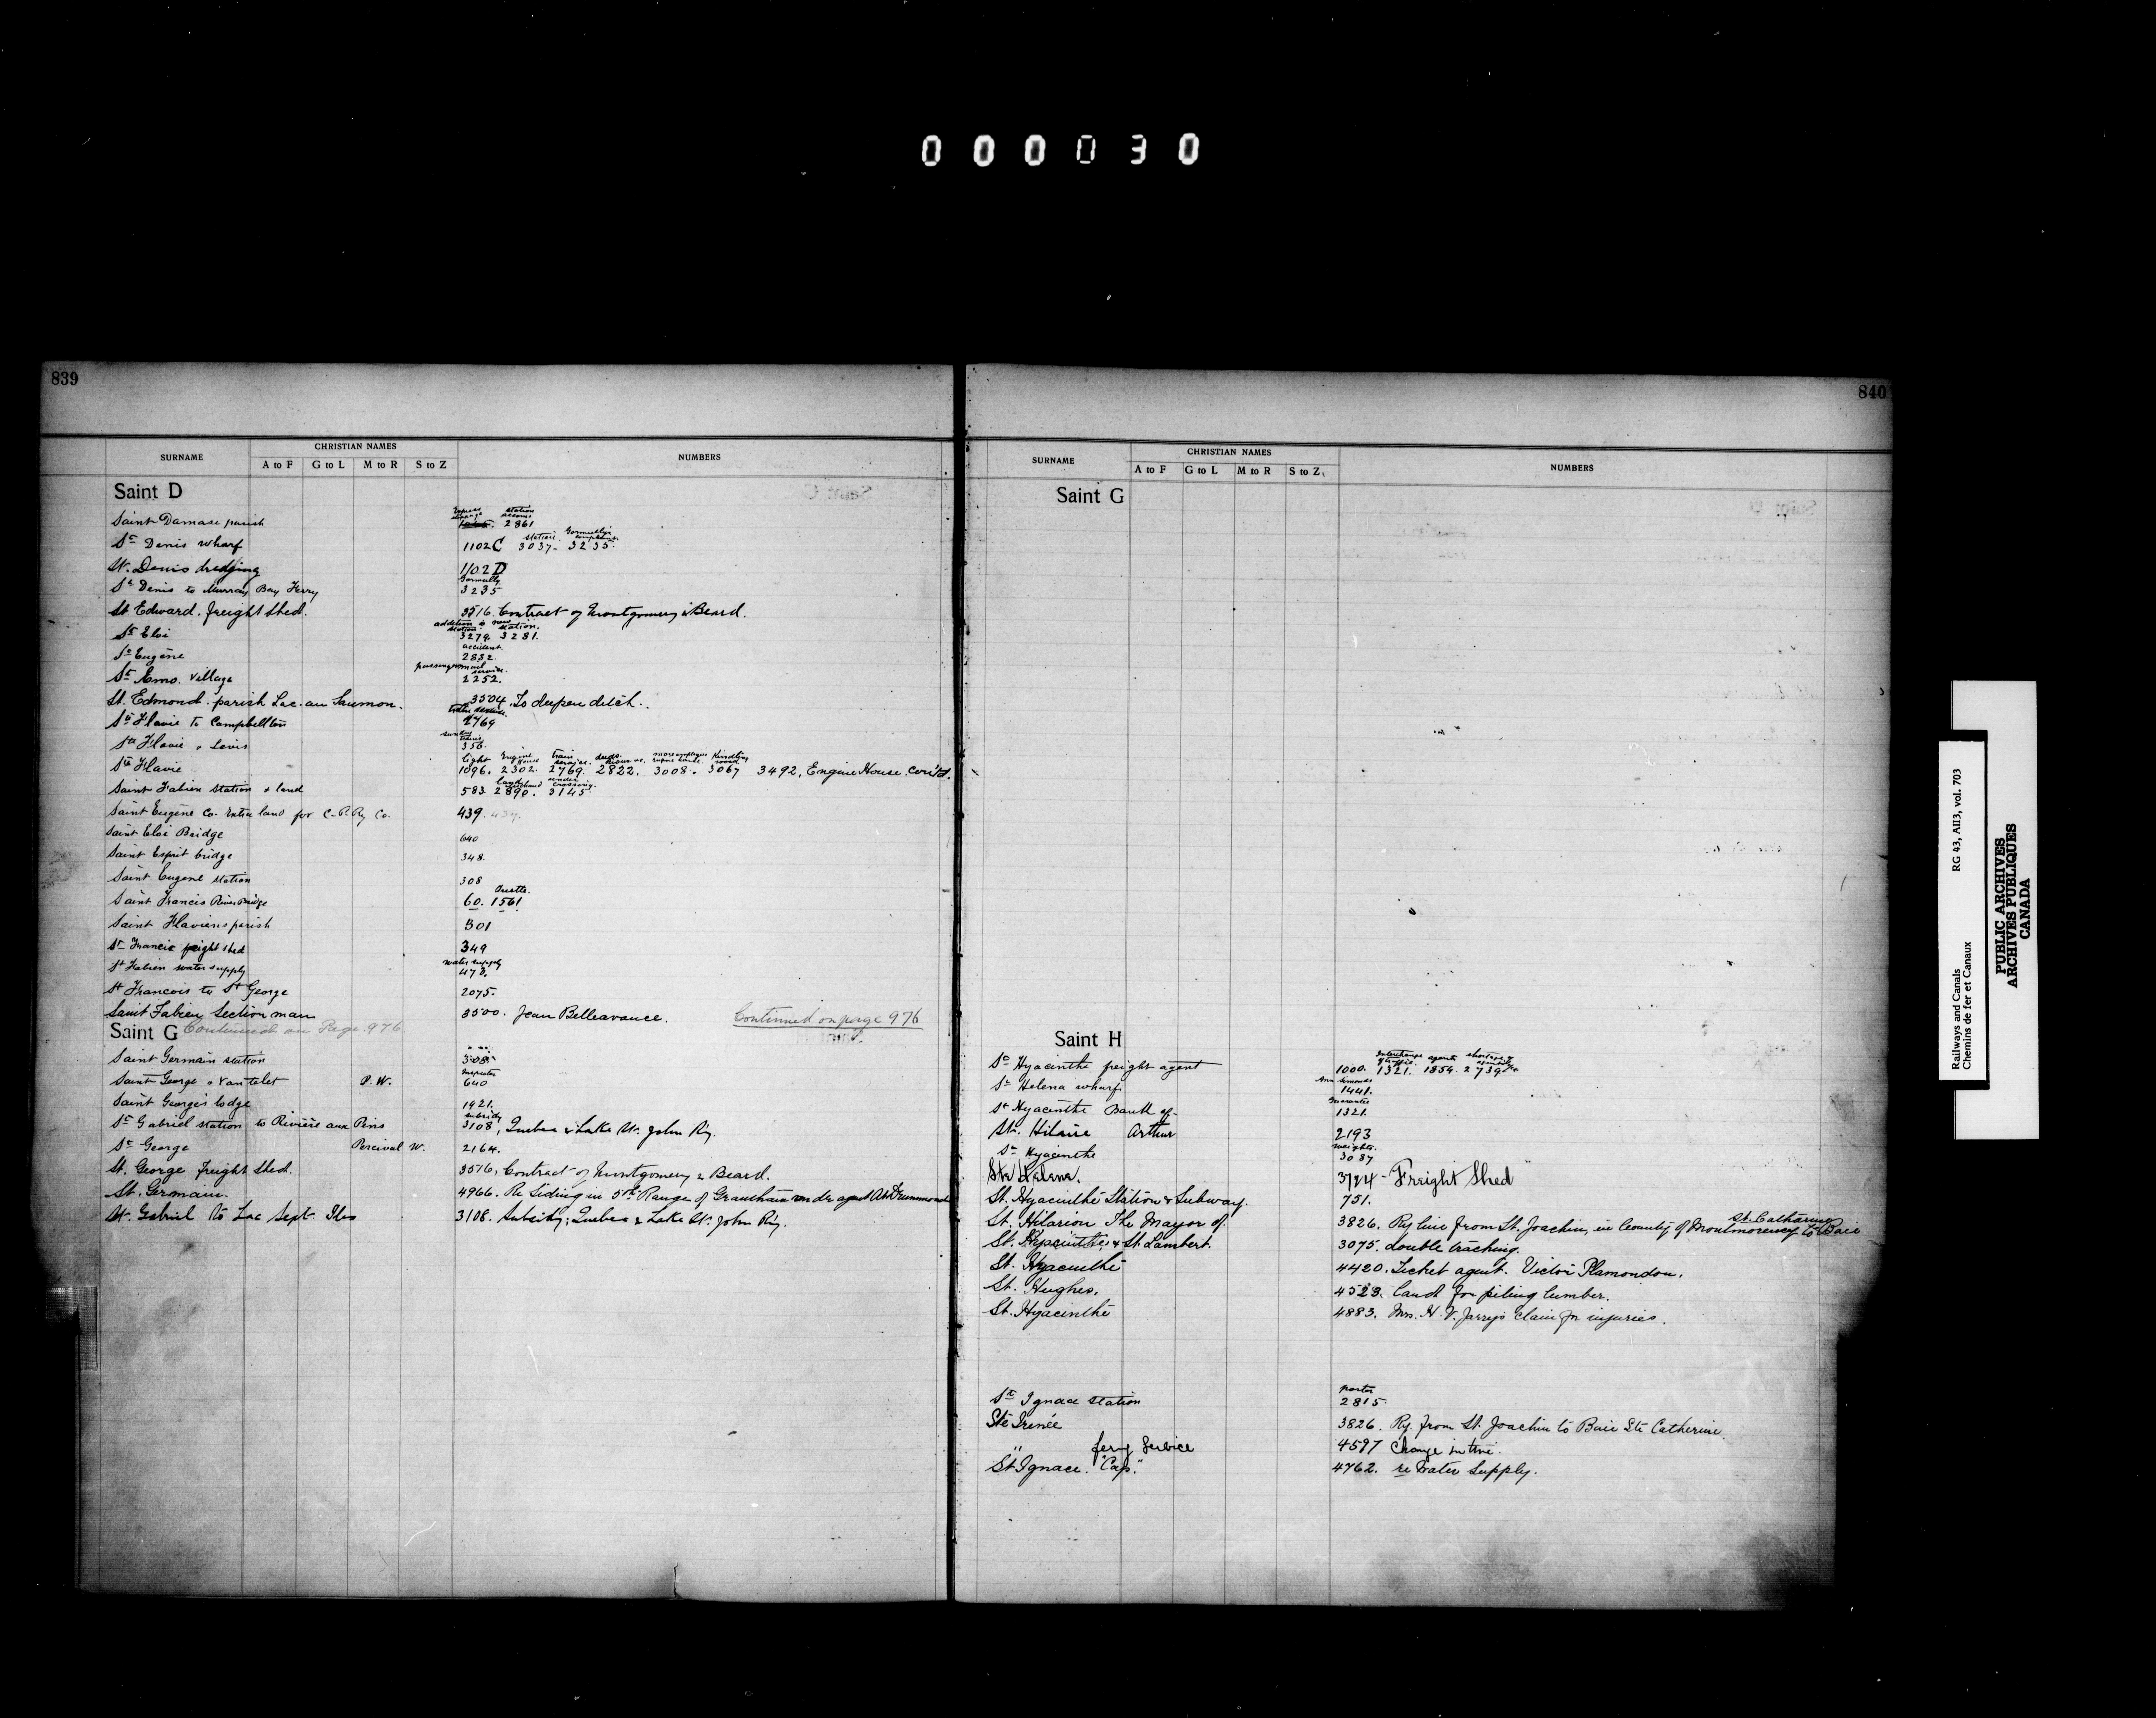 000030
839
SURNAME CHRISTIAN NAMES NUMBERS
A to F G to L M to R S to Z
Saint D
Saint Damase parish 2861 station
St Denis wharf 1102 C 3037 - 3235. station. Gormully's complaint
St. Denis dredging 1102 D
St Denis to Murray Bay Ferry 3235 Gormully
St Edward. freight shed. 3516. Contract of Montgomery & Beard.
St Eloi 3279. 3281. addition to station. new station.
St Eugène 2832. accident
St Elmo. Village 2252.
St. Edmond. parish Lac-au Saumon. 3504. To deepen ditch.
Ste Flavie to Campbellton 2769
Ste Flavie & Levis 356.
Ste Flavie 1096. 2302. 2769. 2822. 3008. 3067 3492, Engine House. cont'd. light Engine House train service.
Saint Fabien station & land 583. 2890. 3145. land under crossing.
Saint Eugène Co. land for C.P. Ry Co. 439. 439.
Saint Eloi Bridge 640
Saint Esprit bridge 348.
Saint Eugene station 308
Saint Francis River Bridge 60. 1561
Saint Flaviens parish 301
St Francis freight shed 349
St Fabien water supply 478. water supply
St Francois to St George 2075.
Saint Fabien, Section man 3500. Jean Belleavance. Continued on page 976
Saint G Continued on Page 976
Saint Germain station 308.
Saint George & Vantelet P. W. 640 Inspector
Saint George's lodge 1921.
St Gabriel station to Rivière aux Pins 3108, Quebec & Lake St. John Ry. subsidy
St George Percival W. 2164.
St. George freight shed. 3516, Contract of Montgomery & Beard.
St. Germain. 4966. Re Siding in 5th Range of Grantham
St. Gabriel to Lac Sept. Iles 3108. Subsidy; Quebec & Lake St. John Ry.
840
SURNAME CHRISTIAN NAMES NUMBERS
A to F G to L M to R S to Z
Saint G
Saint H
St Hyacinthe freight agent 1000. 1321. 1854. 2739. Interchange of traffic. agents shortage of
St Helena wharf 1441. Ann Simonds
St Hyacinthe Bank of 1321. Guarantee
St. Hilaire Arthur 2193
St Hyacinthe 3087 weights.
Ste Helena. 3724 - Freight Shed
St. Hyacinthe Station & Subway. 751.
St. Hilarion The Mayor of. 3826. Ry line from St. Joachim, in County of Montmorency to Baie St. Catharine
St. Hyacinthe & St. Lambert. 3075. double tracking.
St. Hyacinthe 4420. Ticket agent. Victor Plamondon.
St. Hughes. 4523. Land for piling lumber.
St. Hyacinthe 4883. Mrs. H. V. Jarry's claim for injuries.
St Ignace station 2815. porter
Ste Irenée 3826. Ry. from St. Joachim to Baie Ste Catherine.
" ferry Service 4597 Change in time.
St Ignace. "Cap." 4762. re Water Supply.
Railways and Canals RG 43, AII3, vol. 703
Chemins de fer et Canaux
PUBLIC ARCHIVES
ARCHIVES PUBLIQUES
CANADA